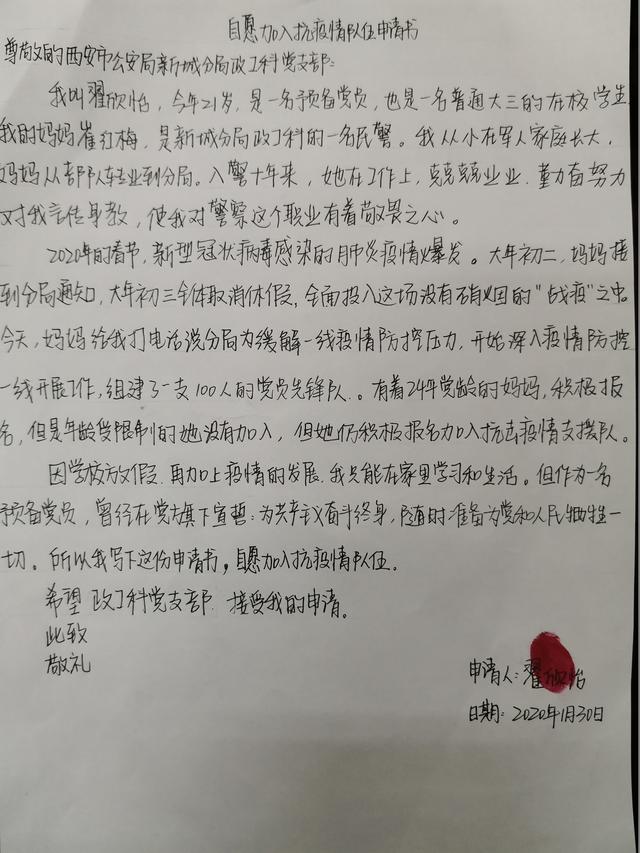 自愿加入抗疫情队伍申请书
尊敬的西安市公安局新城分局政工科党支部:
我叫翟欣怡，今年21岁，是一名预备党员，也是一名普通大三的在校学生
我的妈妈崔红梅，是新城分局政工科的一名民警。我从小在军人家庭长大，
妈妈从部队转业到分局。入警十年来，她在工作上，兢兢业业，勤奋努力
又对我言传身教，使我对警察这个职业有着敬畏之心。
2020年的春节，新型冠状病毒感染的肺炎疫情爆发。大年初二，妈妈接
到分局通知，大年初三全体取消休假，全面投入这场没有硝烟的“战疫”之中。
今天，妈妈给我打电话说分局为缓解一线疫情防控压力，开始深入疫情防控
一线开展工作，组建了一支100人的党员先锋队。有着24年党龄的妈妈，积极报
名，但是年龄受限制的她没有加入，但她仍积极报名加入抗击疫情支援队。
因学校放假，再加上疫情的发展，我只能在家里学习和生活。但作为一名
预备党员，曾经在党旗下宣誓：为共产主义奋斗终身，随时准备为党和人民牺牲一
切。所以我写下这份申请书，自愿加入抗疫情队伍。
希望政工科党支部接受我的申请。
此致
敬礼
申请人：翟欣怡
日期：2020年1月30日